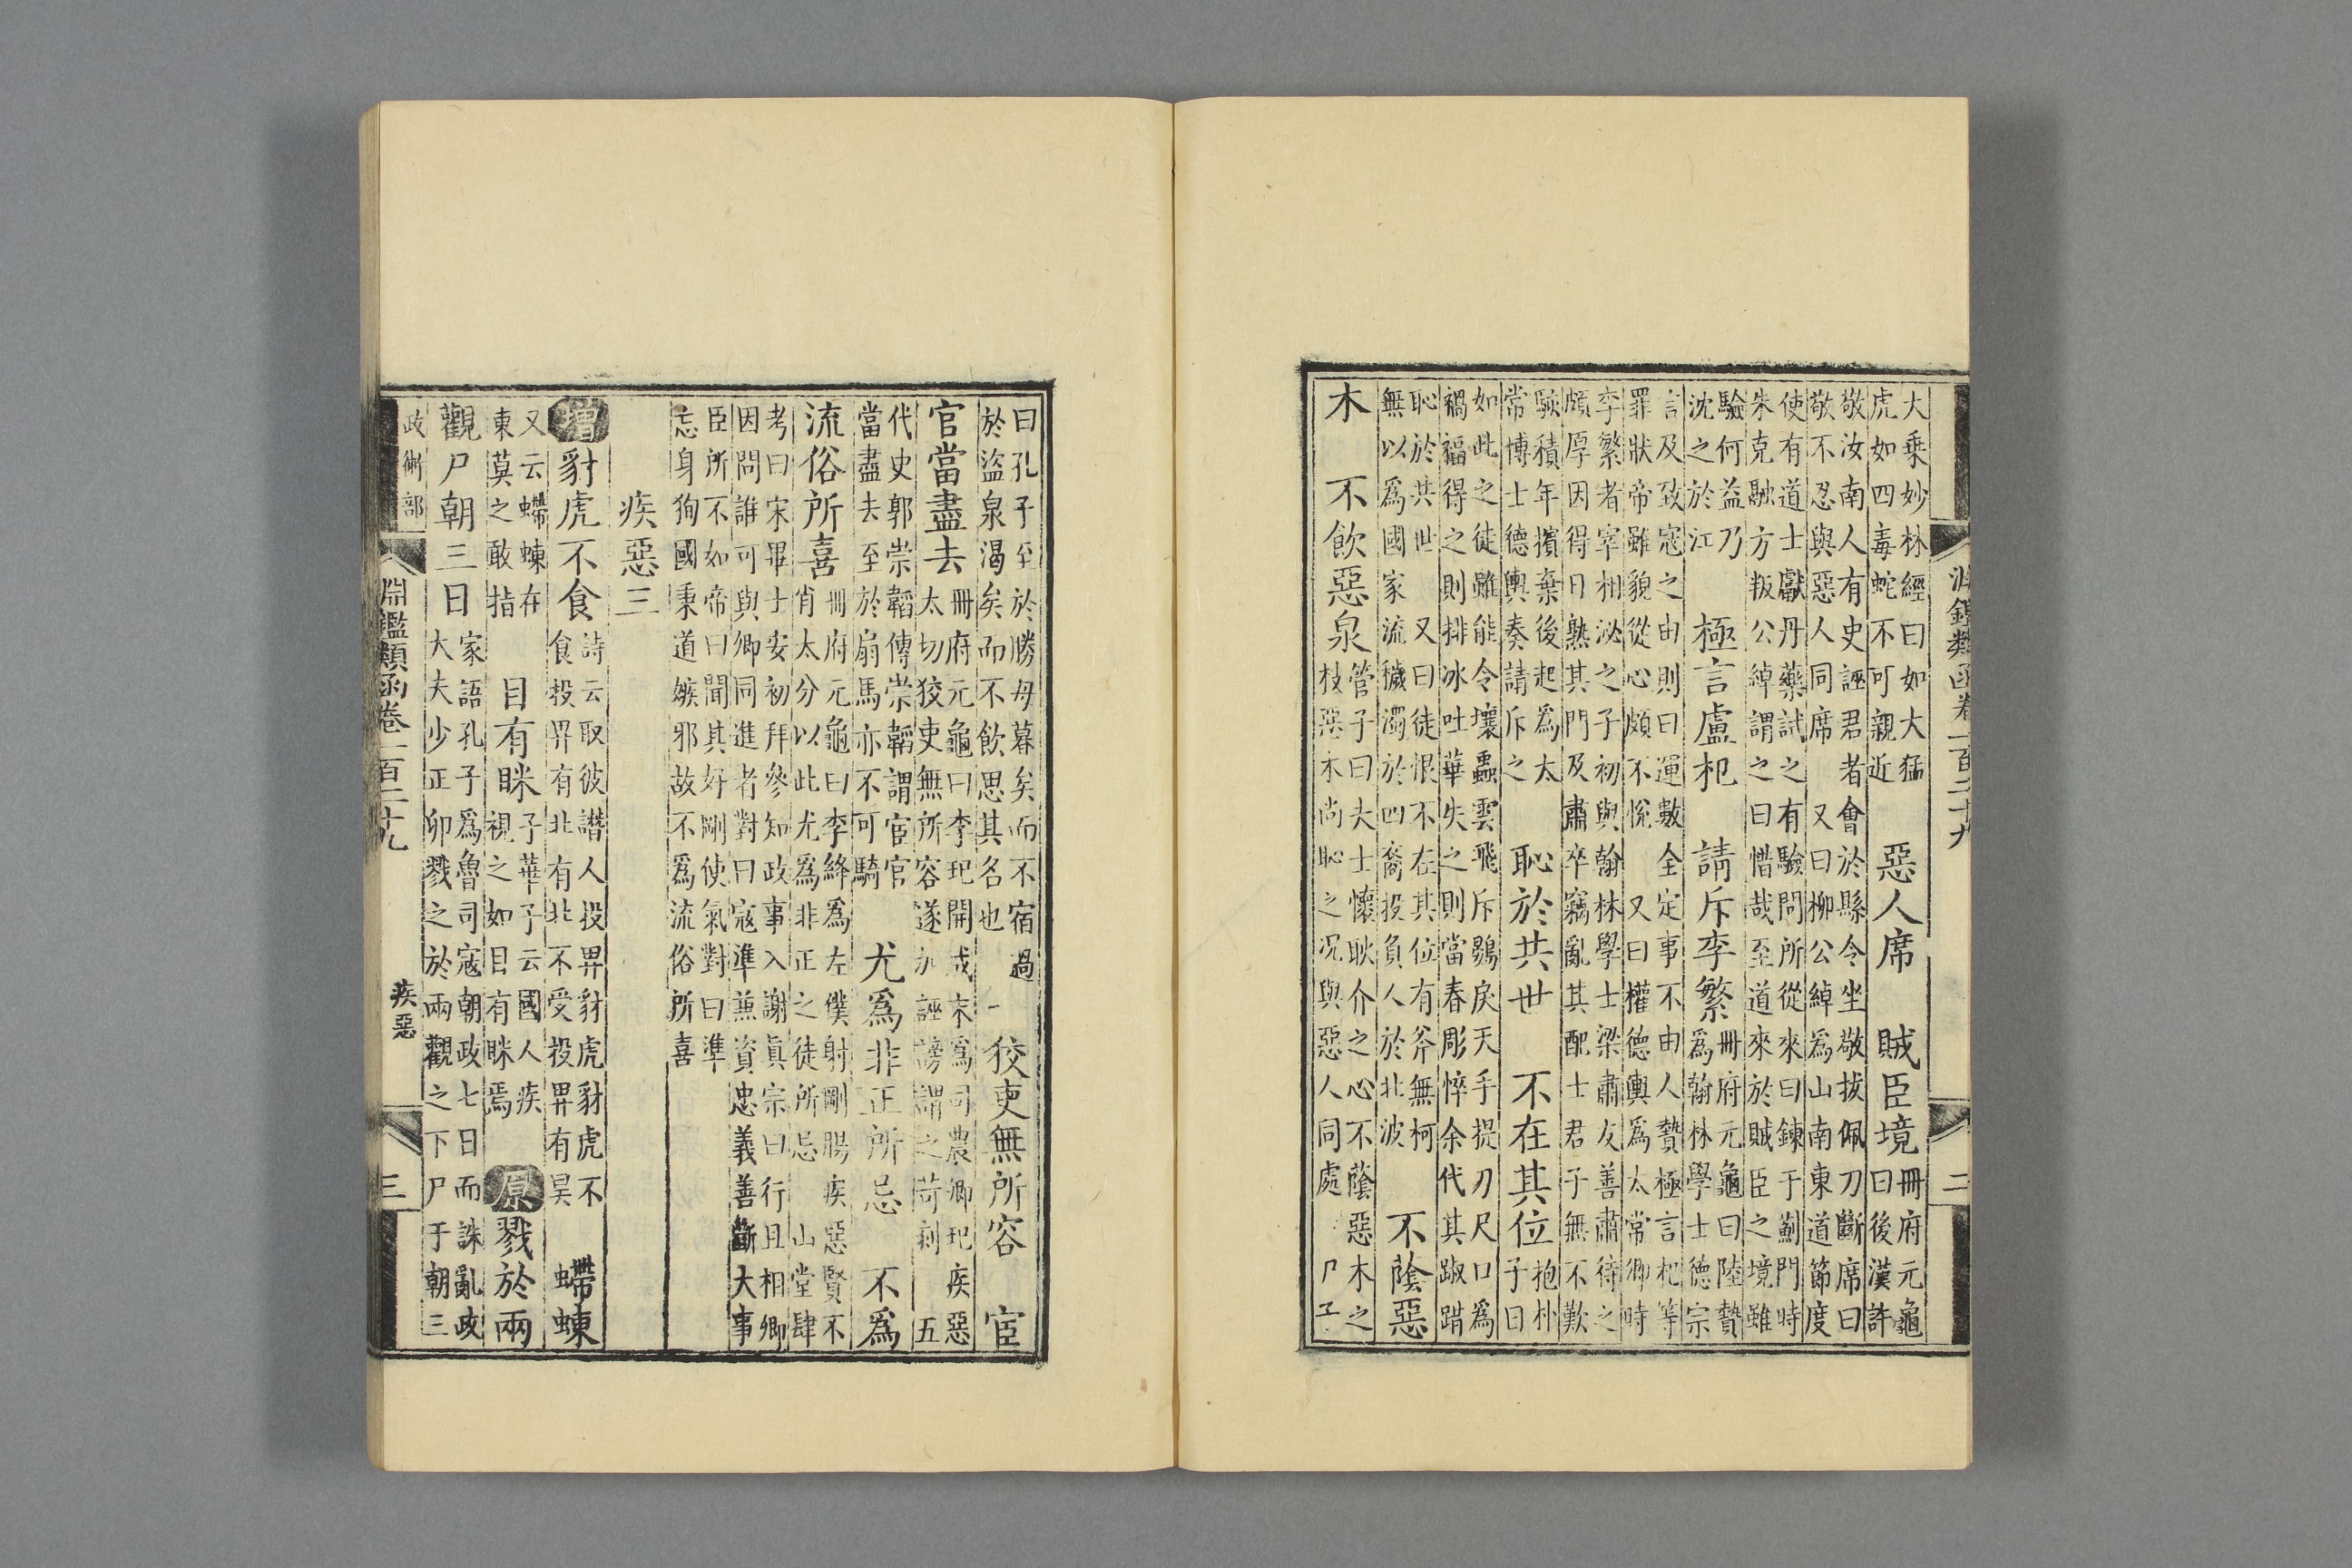 淵鑑類函卷一百二十九 二
大乗妙林經曰如大猛
虎如四毒蛇不可親近
惡人席 賊臣境
冊府元龜
曰後漢許
敬汝南人有史誣君者會於縣令坐敬拔佩刀斷席曰
敬不忍與惡人同席 又曰柳公綽爲山南東道節度
使有道士獻丹藥試之有驗問所從來曰鍊于薊門時
朱克融方叛公綽謂之曰惜哉至道來於賊臣之境雖
驗何益乃
沈之於江
極言盧杞 請斥李繁
冊府元龜曰陸贄
爲翰林學士德宗
言及致寇之由則曰運數全定事不由人贄極言杞等
罪狀帝雖貌從心頗不悅 又曰權德輿爲太常卿時
李繁者宰相泌之子初與翰林學士梁肅友善肅待之
頗厚因得日熟其門及肅卒竊亂其配士君子無不歎
駭積年擯棄後起爲太
常博士德輿奏請斥之
恥於共世 不在其位
抱朴
子曰
如此之徒雖能令壤蟲雲飛斥鷃戾天手提刃尺口爲
禍福得之則排冰吐華失之則當春彫悴余代其踧踖
恥於其世 又曰徒恨不在其位有斧無柯
無以爲國家流穢濁於四裔投負人於北波
不蔭惡
木 不飲惡泉
管子曰夫士懷耿介之心不蔭惡木之
枝惡木尚恥之况與惡人同處 尸子
曰孔子至於勝母暮矣而不宿過
於盜泉渴矣而不飲思其名也
狡吏無所容 宦
官當盡去
冊府元龜曰李玘開成末爲司農卿玘疾惡
太切狡吏無所容遂加誣謗謂之苛刻 五
代史郭崇韜傳崇韜謂宦官
當盡去至於扇馬亦不可騎
尤爲非正所忌 不爲
流俗所喜
冊府元龜曰李絳爲左僕射剛腸疾惡賢不
肖太分以此尤爲非正之徒所忌 山堂肆
考曰宋畢士安初拜參知政事入謝眞宗曰行且相卿
因問誰可與卿同進者對曰寇準兼資忠義善斷大事
臣所不如帝曰聞其好剛使氣對曰準
忘身狥國秉道嫉邪故不爲流俗所喜
疾惡三
增豺虎不食
詩云取彼譖人投畀豺虎豺虎不
食投畀有北有北不受投畀有昊
蝃蝀
又云蝃蝀在
東莫之敢指
目有眯
子華子云國人疾
視之如目有眯焉
原戮於兩
觀尸朝三日
家語孔子爲魯司寇朝政七日而誅亂政
大夫少正卯戮之於兩觀之下尸于朝三
政術部
淵鑑類函卷一百二十九 疾惡 三